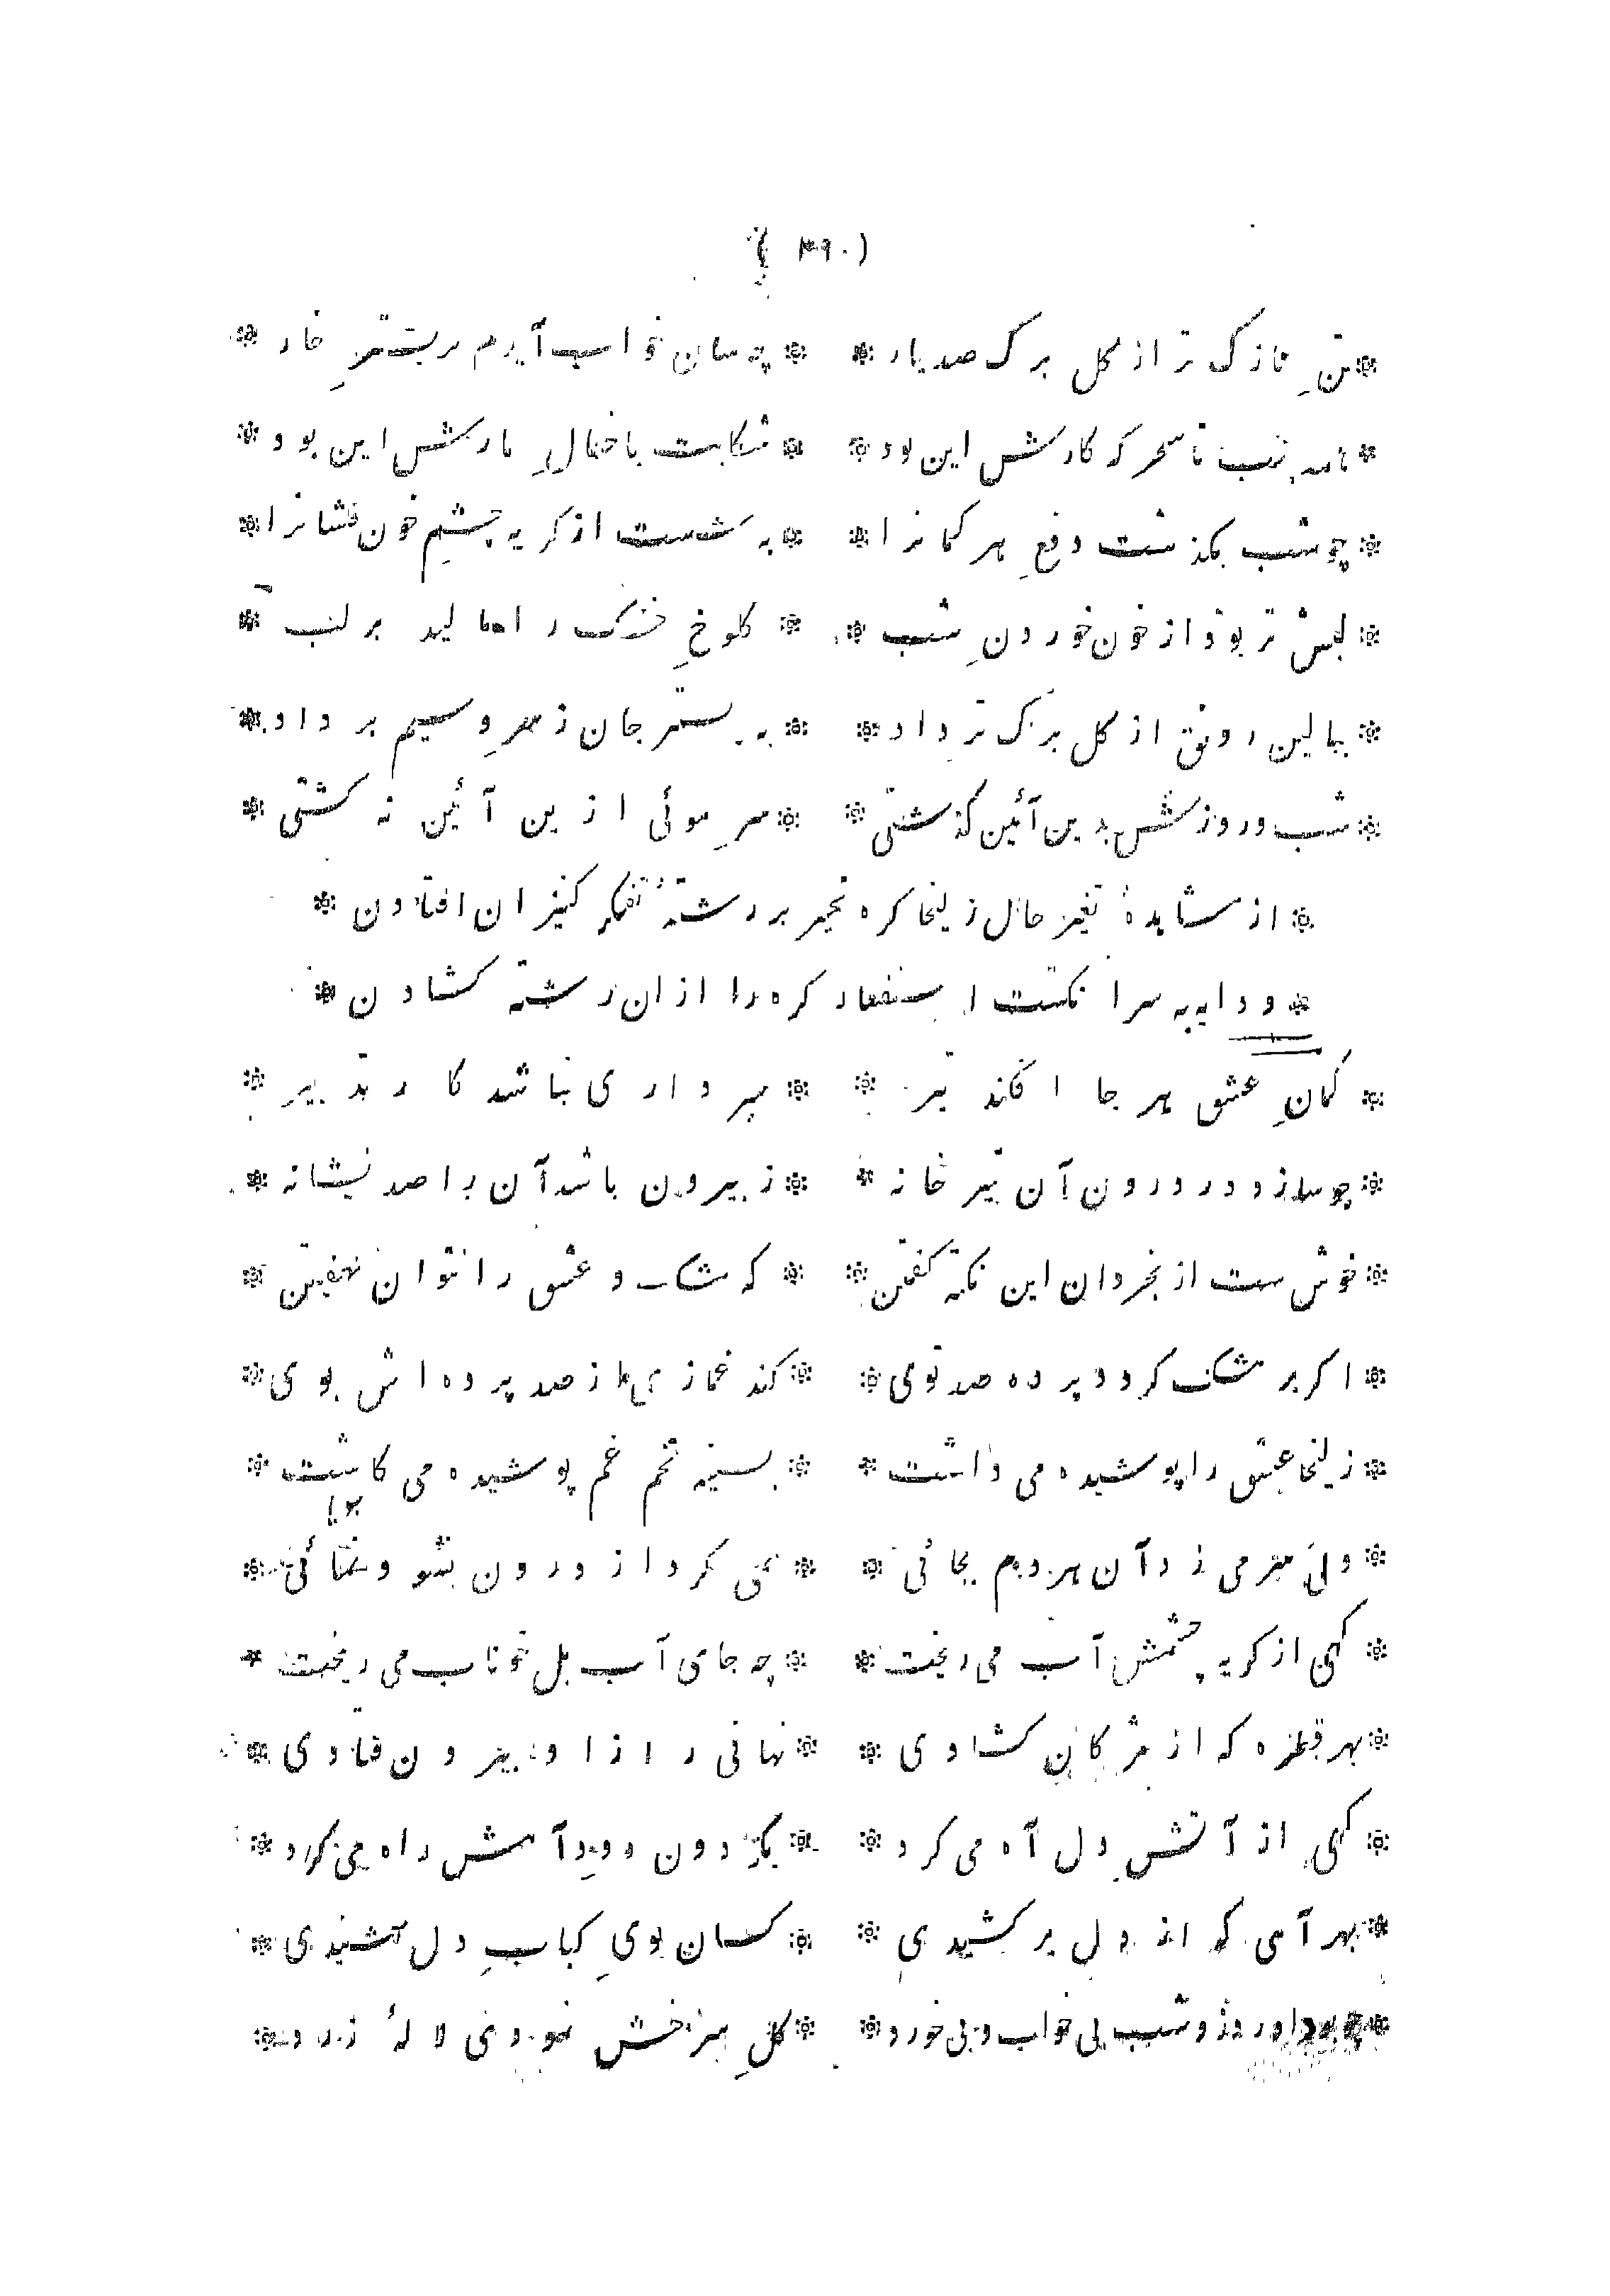 ( ۳۹۰ )
* تنِ نازک تر از کل برک صد بار * * چه سان خواب آیدم بر بسترِ خار *
* شب تا سحر که کارش این بود * * شکایت با خیالِ یارش این بود *
* چو شب بکذشت دفعِ هر کمانرا * * به شست از کریه چشمِ خون فشانرا *
* لبش تر بود از خون خوردنِ شب * * کلوخِ خشک را مالید بر لب *
* ببالین رونق از کل برک تر داد * * به بستر جان ز سروِ سیم بر داد *
* شب و روزش بدین آئین کذشتی * * سرِ موئی ازین آئین نه کشتی *
* از مشاهدهٔ تغیر حال زلیخا کره تحیر بر رشتهٔ تفکر کنیزان افتادن *
* و دایه به سرانکشت استفسار کره را ازان رشته کشادن *
* کمانِ عشق هر جا افکند تیر * * سپر داری نباشد کار تدبیر *
* چو سازد در درون آن تیر خانه * * ز بیرون باشد آن را صد نشانه *
* خوش ست از بخردان این نکته کفتن * * که مشک و عشق را نتوان نهفتن *
* اکر بر مشک کردد پرده صد توی * * کند غمازی از صد پرده اش بوی *
* زلیخا عشق را پوشیده می داشت * * بسینه تخم غم پوشیده می کاشت *
* ولی سر می زد آن هر دم بجائی * * همی کرد از درون نشو و نمائی *
* کهی از کریه چشمش آب می ریخت * * چه جای آب بل خوناب می ریخت *
* بهر قطره که از مژکان کشادی * * نهانی راز او بیرون فتادی *
* کهی از آتشِ دل آه می کرد * * بکردون دودِ آهش راه می کرد *
* بهر آهی که از دل بر کشیدی * * کسان بویِ کبابِ دل شنیدی *
* روز و شب بی خواب و بی خورد * * کلِ سرخش نمودی لالهٔ زرد *